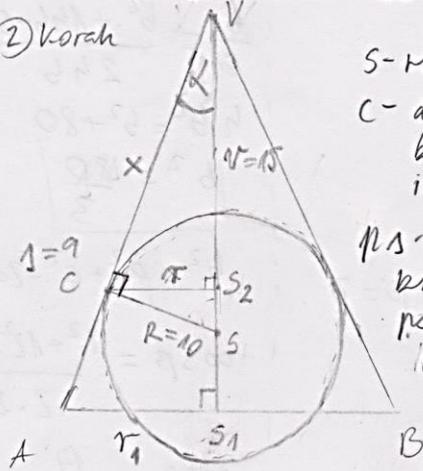 2) Korak
V
S-
α
C-
x
v=15
s=9
C
r
S₂
R=10
S
A
r₁
S₁
B